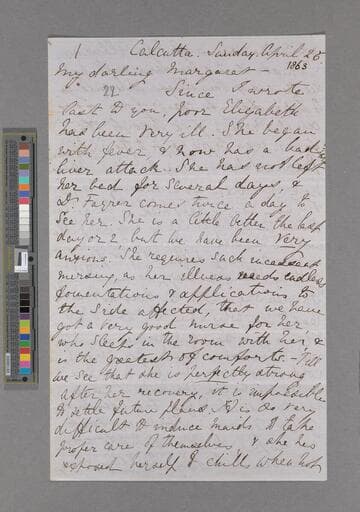 1 Calcutta. Sunday. April 26
1863
My darling Margaret –
22 Since I wrote
last to you, poor Elizabeth
has been very ill. She began
with fever, & now has a bad
liver attack. She has not left
her bed for several days, &
Dr. Fayrer comes twice a day to
see her. She is a little better the last
day or 2 but we have been very
anxious. She requires such incessant
nursing, as her illness needs endless
fomentations & applications to
the side affected, that we have
got a very good nurse for her
who sleeps in the room with her, &
is the greatest of comforts. – Till
we see that she is perfectly strong
after her recovery, it is impossible
to settle future plans. It is so very
difficult to induce maids to take
proper care of themselves & she has
exposed herself to chills, when hot